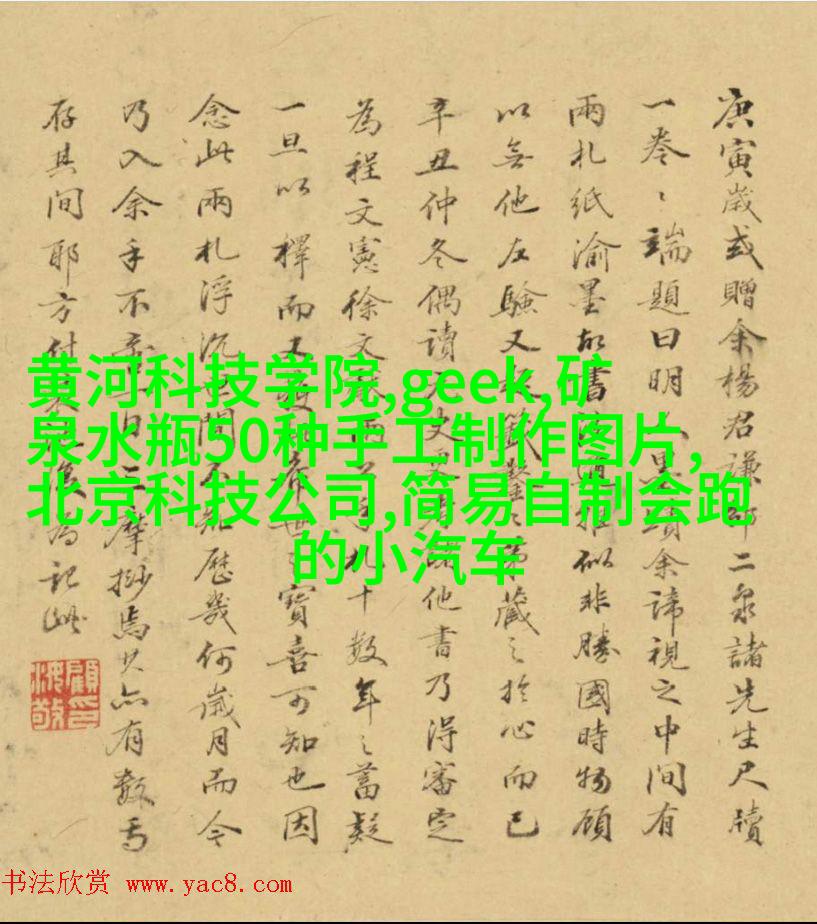 庚寅歲或贈余楊君謙邵二泉諸先生尺牘
一卷〻端題曰明人墨蹟余諦視之中間有
兩札紙渝墨故書似非勝國時物顧
以無他左驗又藏之於心而已
辛丑仲冬偶讀他書乃得審定
為程文憲徐文兩札十數年之蓄疑
一旦以釋而又寶喜可知也因
念此兩札浮沉間不知歷幾何歲月而今
乃入余手不摩挲焉亦有數焉
存其間耶方付記此
黄河科技学院,geek,矿
泉水瓶50种手工制作图片,
北京科技公司,简易自制会跑
的小汽车
书法欣赏 www.yac8.com